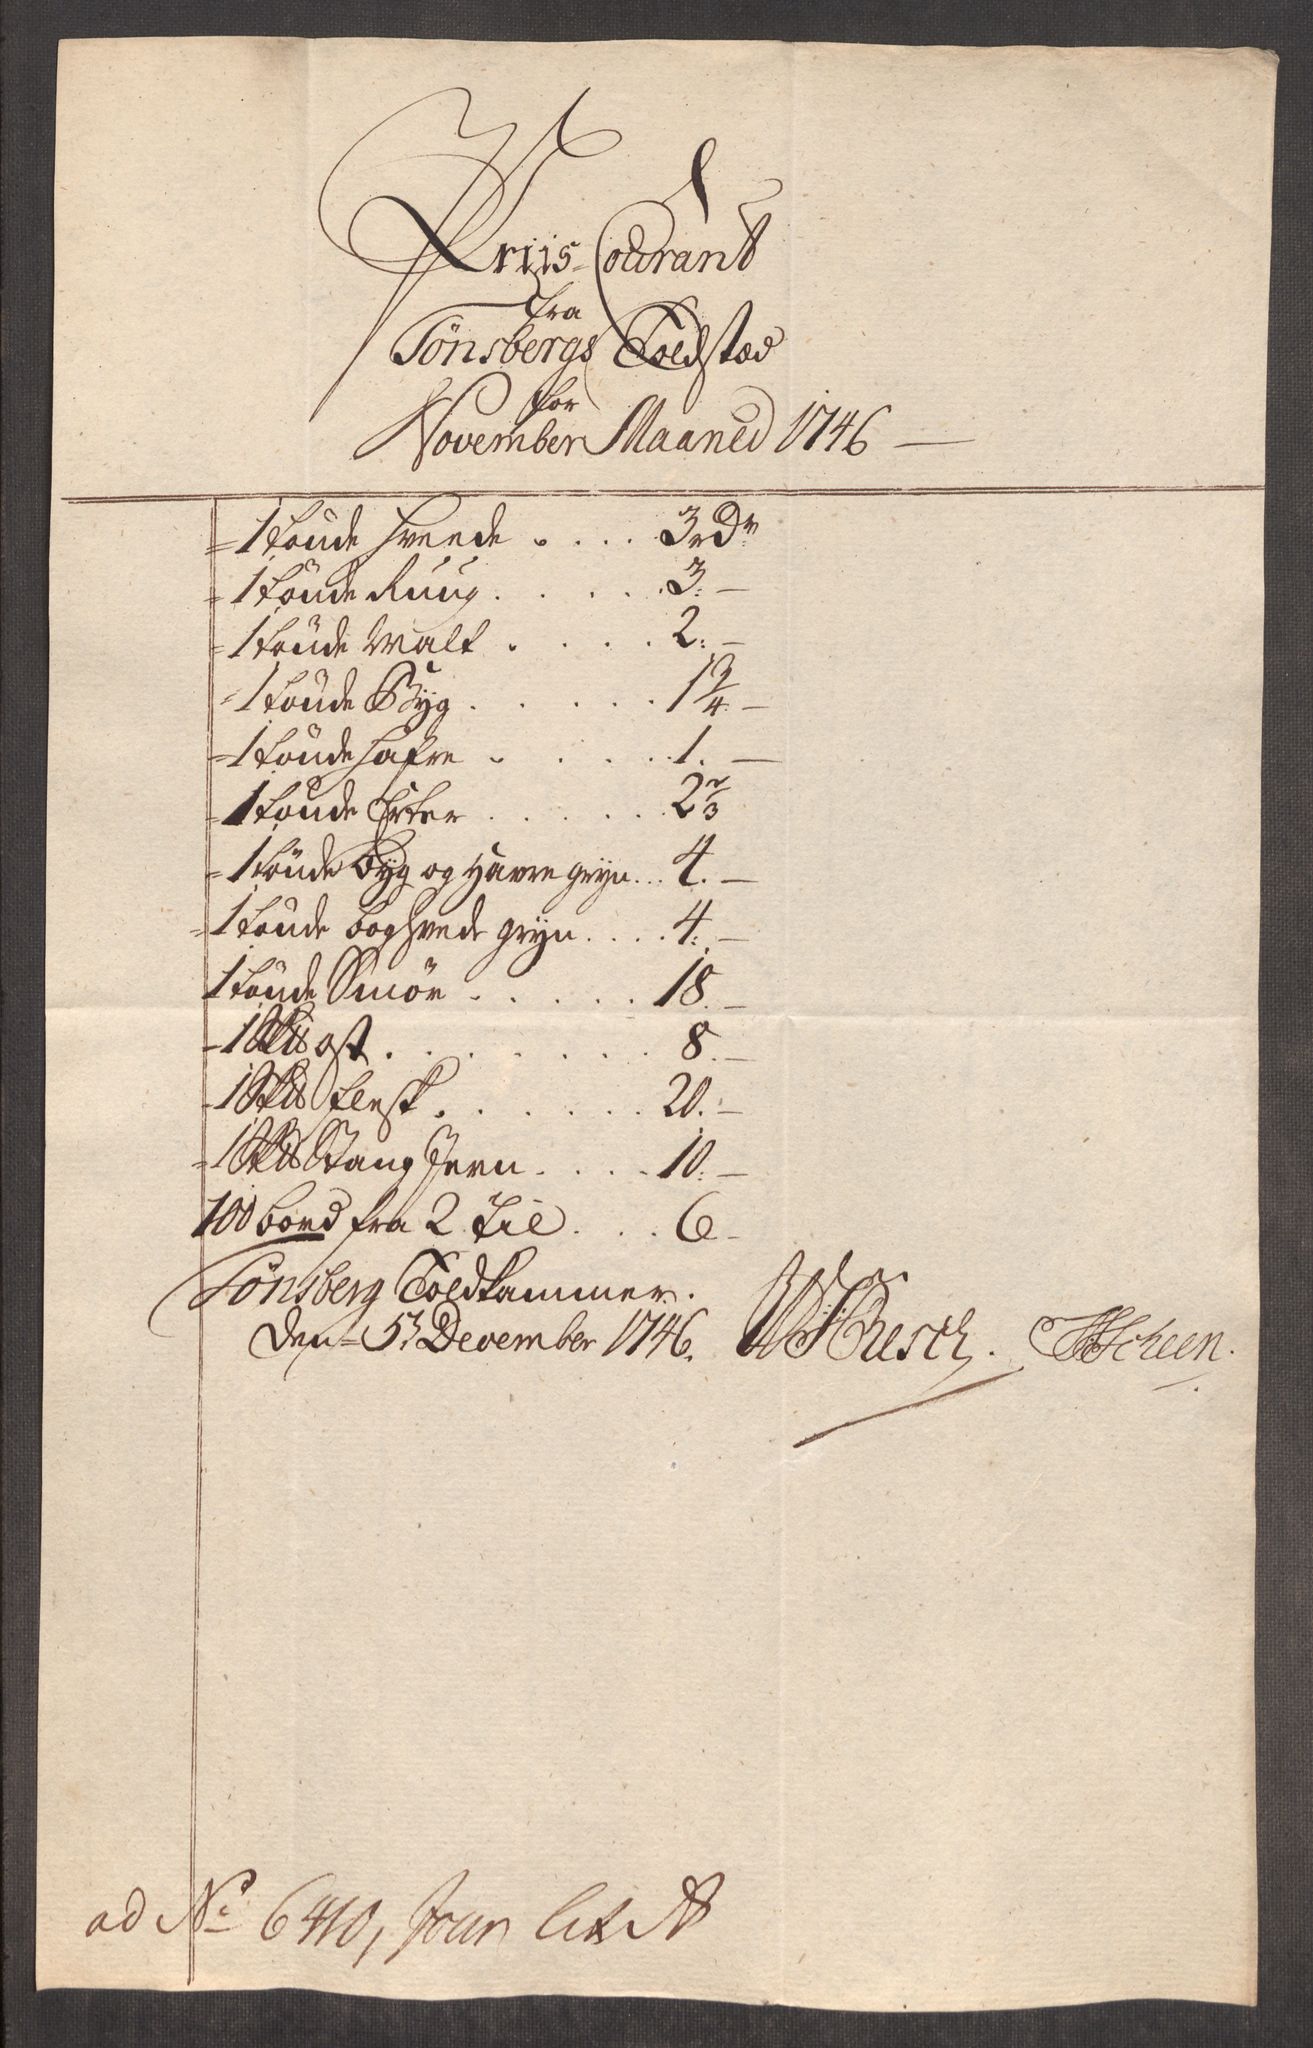 Priis-Courant
fra
Tönsbergs Toldstæd
for
November Maaned 1746
1 tönde Hveede . . . . 3 rdr
1 tönde Ruug . . . . . 3:
1 tönde Malt . . . . 2:
1 tönde Byg . . . . . 1 3/4
1 tönde Hafre . . . . . 1.
1 tönde Erter . . . . . 2 2/3
1 tönde Byg og Havre gryn . . . 4.
1 tönde boghvede gryn . . . . 4:
1 tönde Smör . . . . . 18.
1 Sk℔ ost . . . . . . . . 8.
1 Sk℔ flesk . . . . . . 20.
1 Sk℔ Stang Jern . . . . 10:
100 bord fra 2 til . . . 6
Tönsberg Toldkammer.
den 5t December 1746. Resch. Scheen.
ad No 6410, Jour lit A